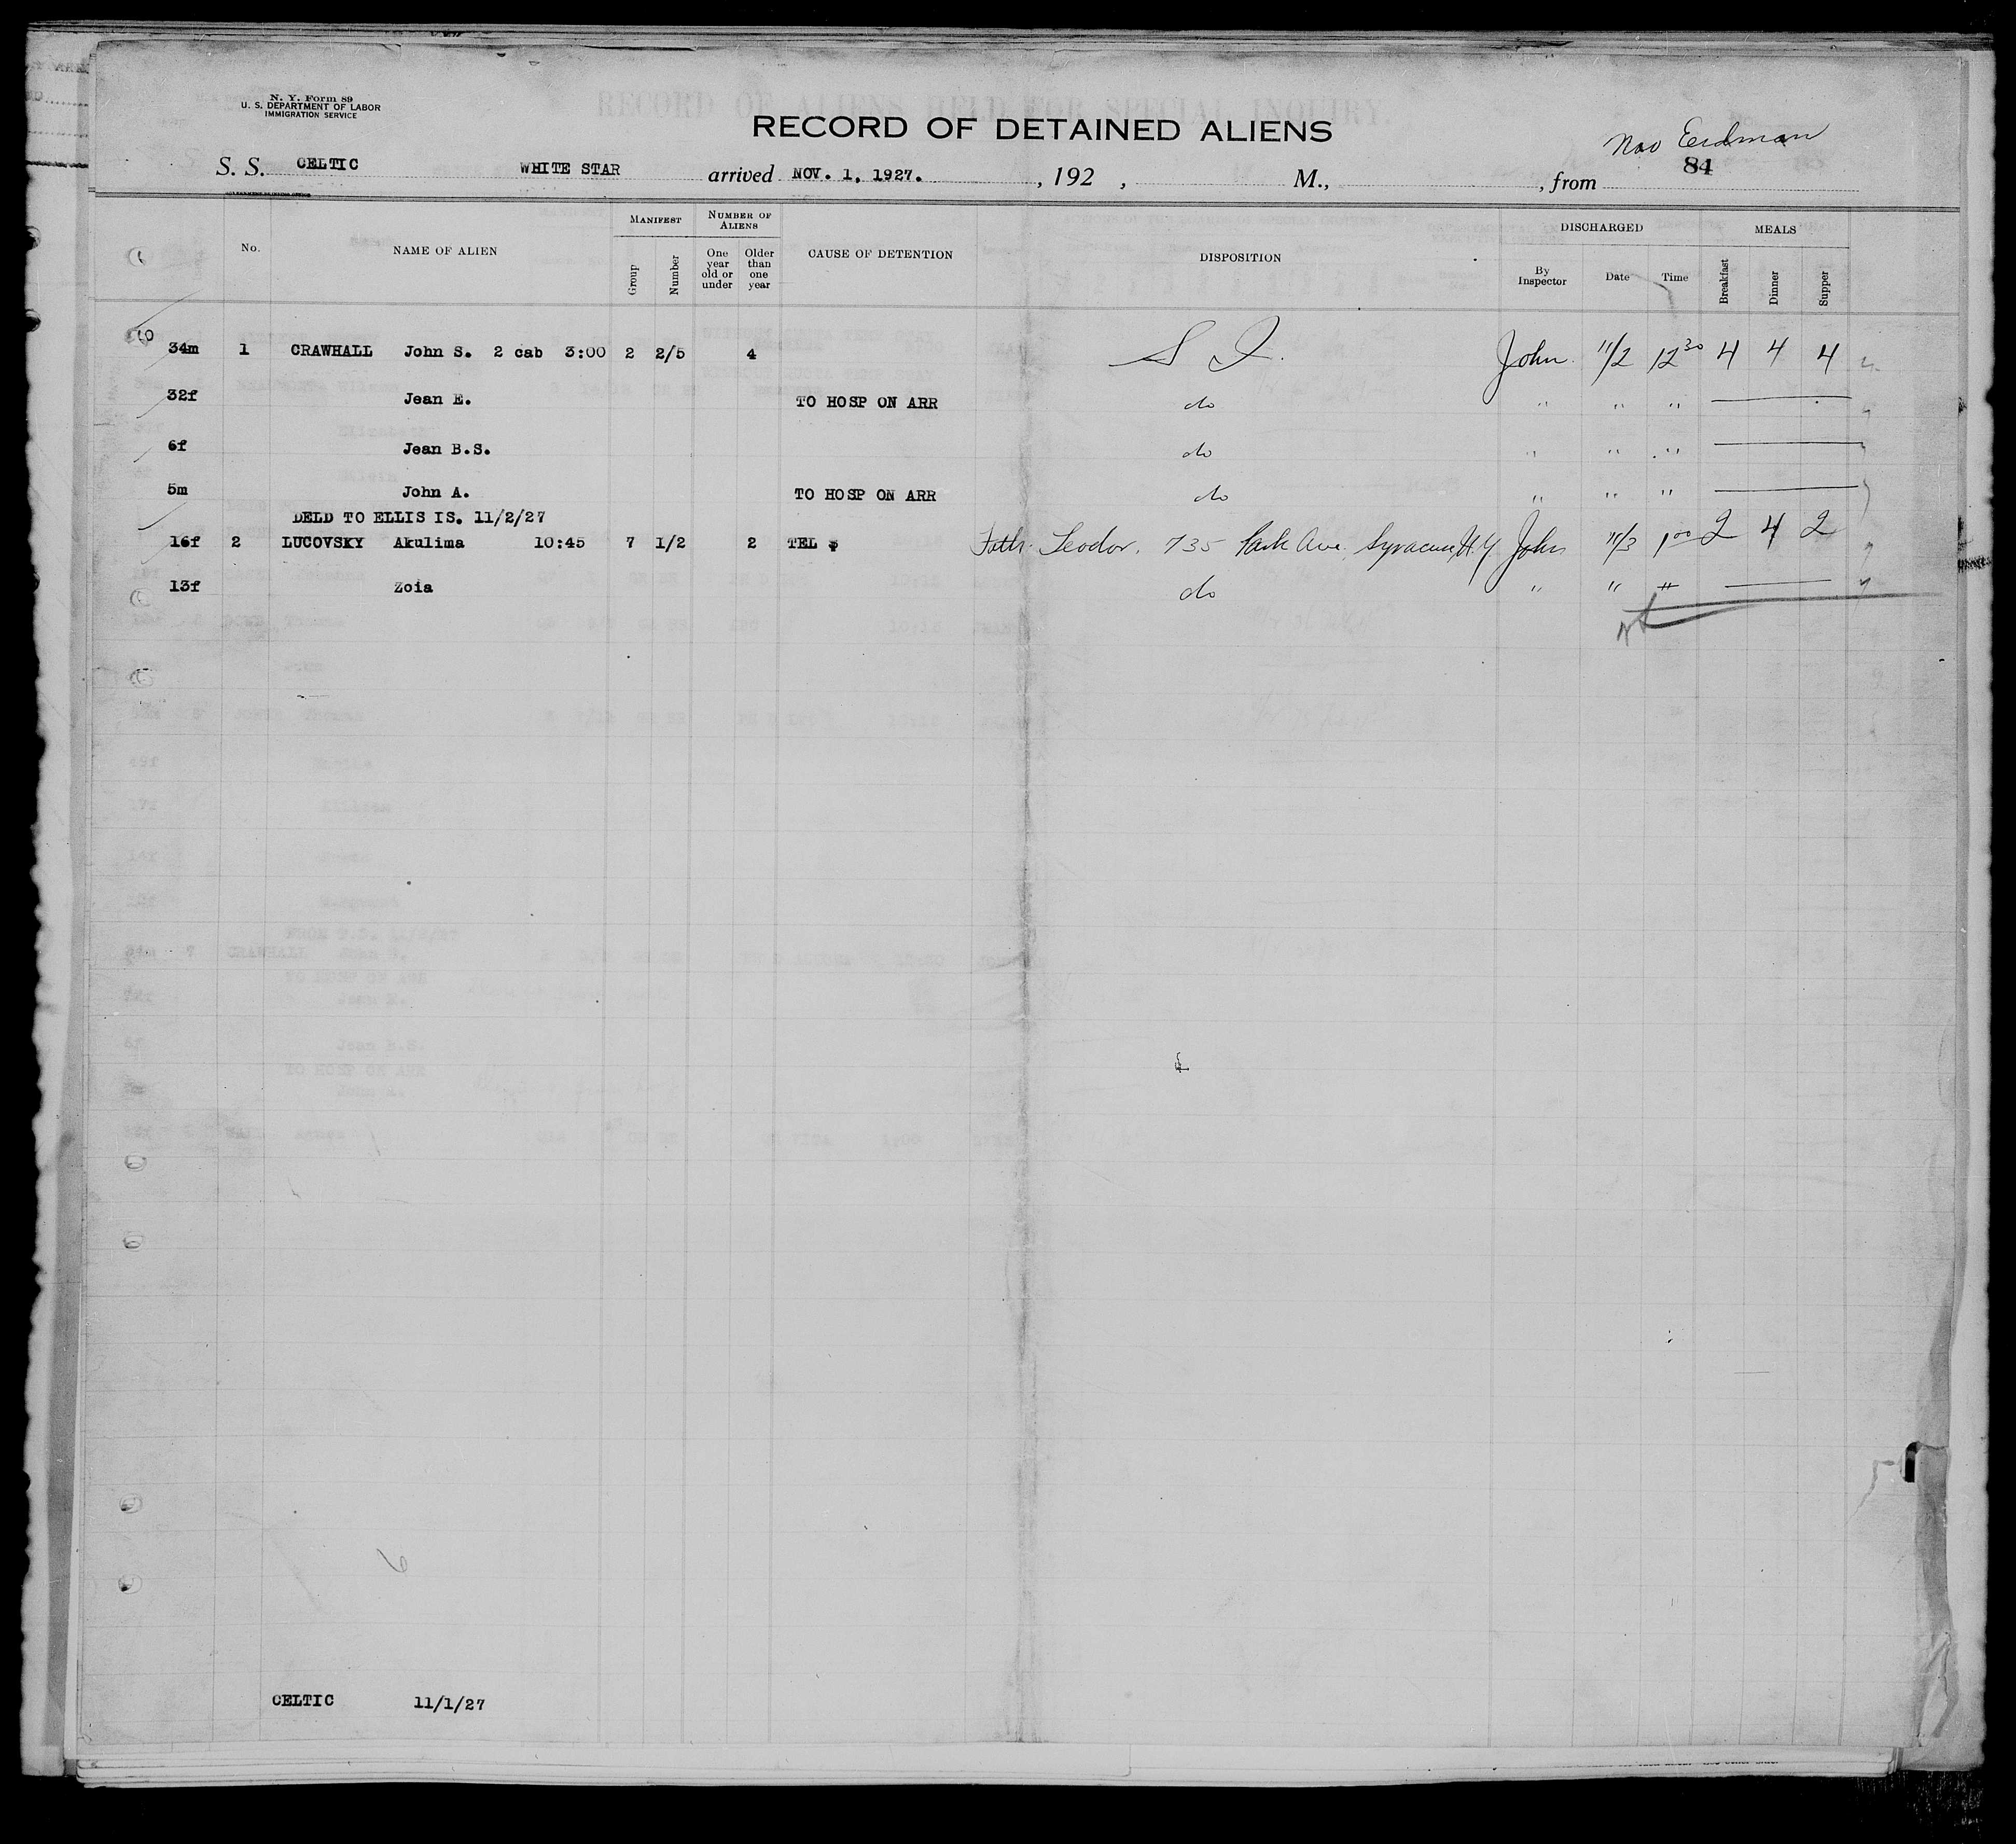 N. Y. Form 89
U. S. DEPARTMENT OF LABOR
IMMIGRATION SERVICE
RECORD OF ALIENS HELD FOR SPECIAL INQUIRY.
RECORD OF DETAINED ALIENS
Erdman
84
S. S. CELTIC WHITE STAR arrived NOV. 1, 1927. , 192 , M., , from
GOVERNMENT PRINTING OFFICE
No. NAME OF ALIEN MANIFEST Group Number NUMBER OF ALIENS One year old or under Older than one year CAUSE OF DETENTION DISPOSITION DISCHARGED By Inspector Date Time MEALS Breakfast Dinner Supper
34m 1 CRAWHALL John S. 2 cab 3:00 2 2/5 4 S I. John 11/2 12 30 4 4 4
32f Jean E. TO HOSP ON ARR do " " "
6f Jean B.S. do " " "
5m John A. TO HOSP ON ARR do " " "
DELD TO ELLIS IS. 11/2/27
16f 2 LUCOVSKY Akulima 10:45 7 1/2 2 TEL $ Fath. Feodor, 735 Park Ave. Syracuse, N.Y. John 11/3 1 00 2 4 2
13f Zoia do " " "
CELTIC 11/1/27